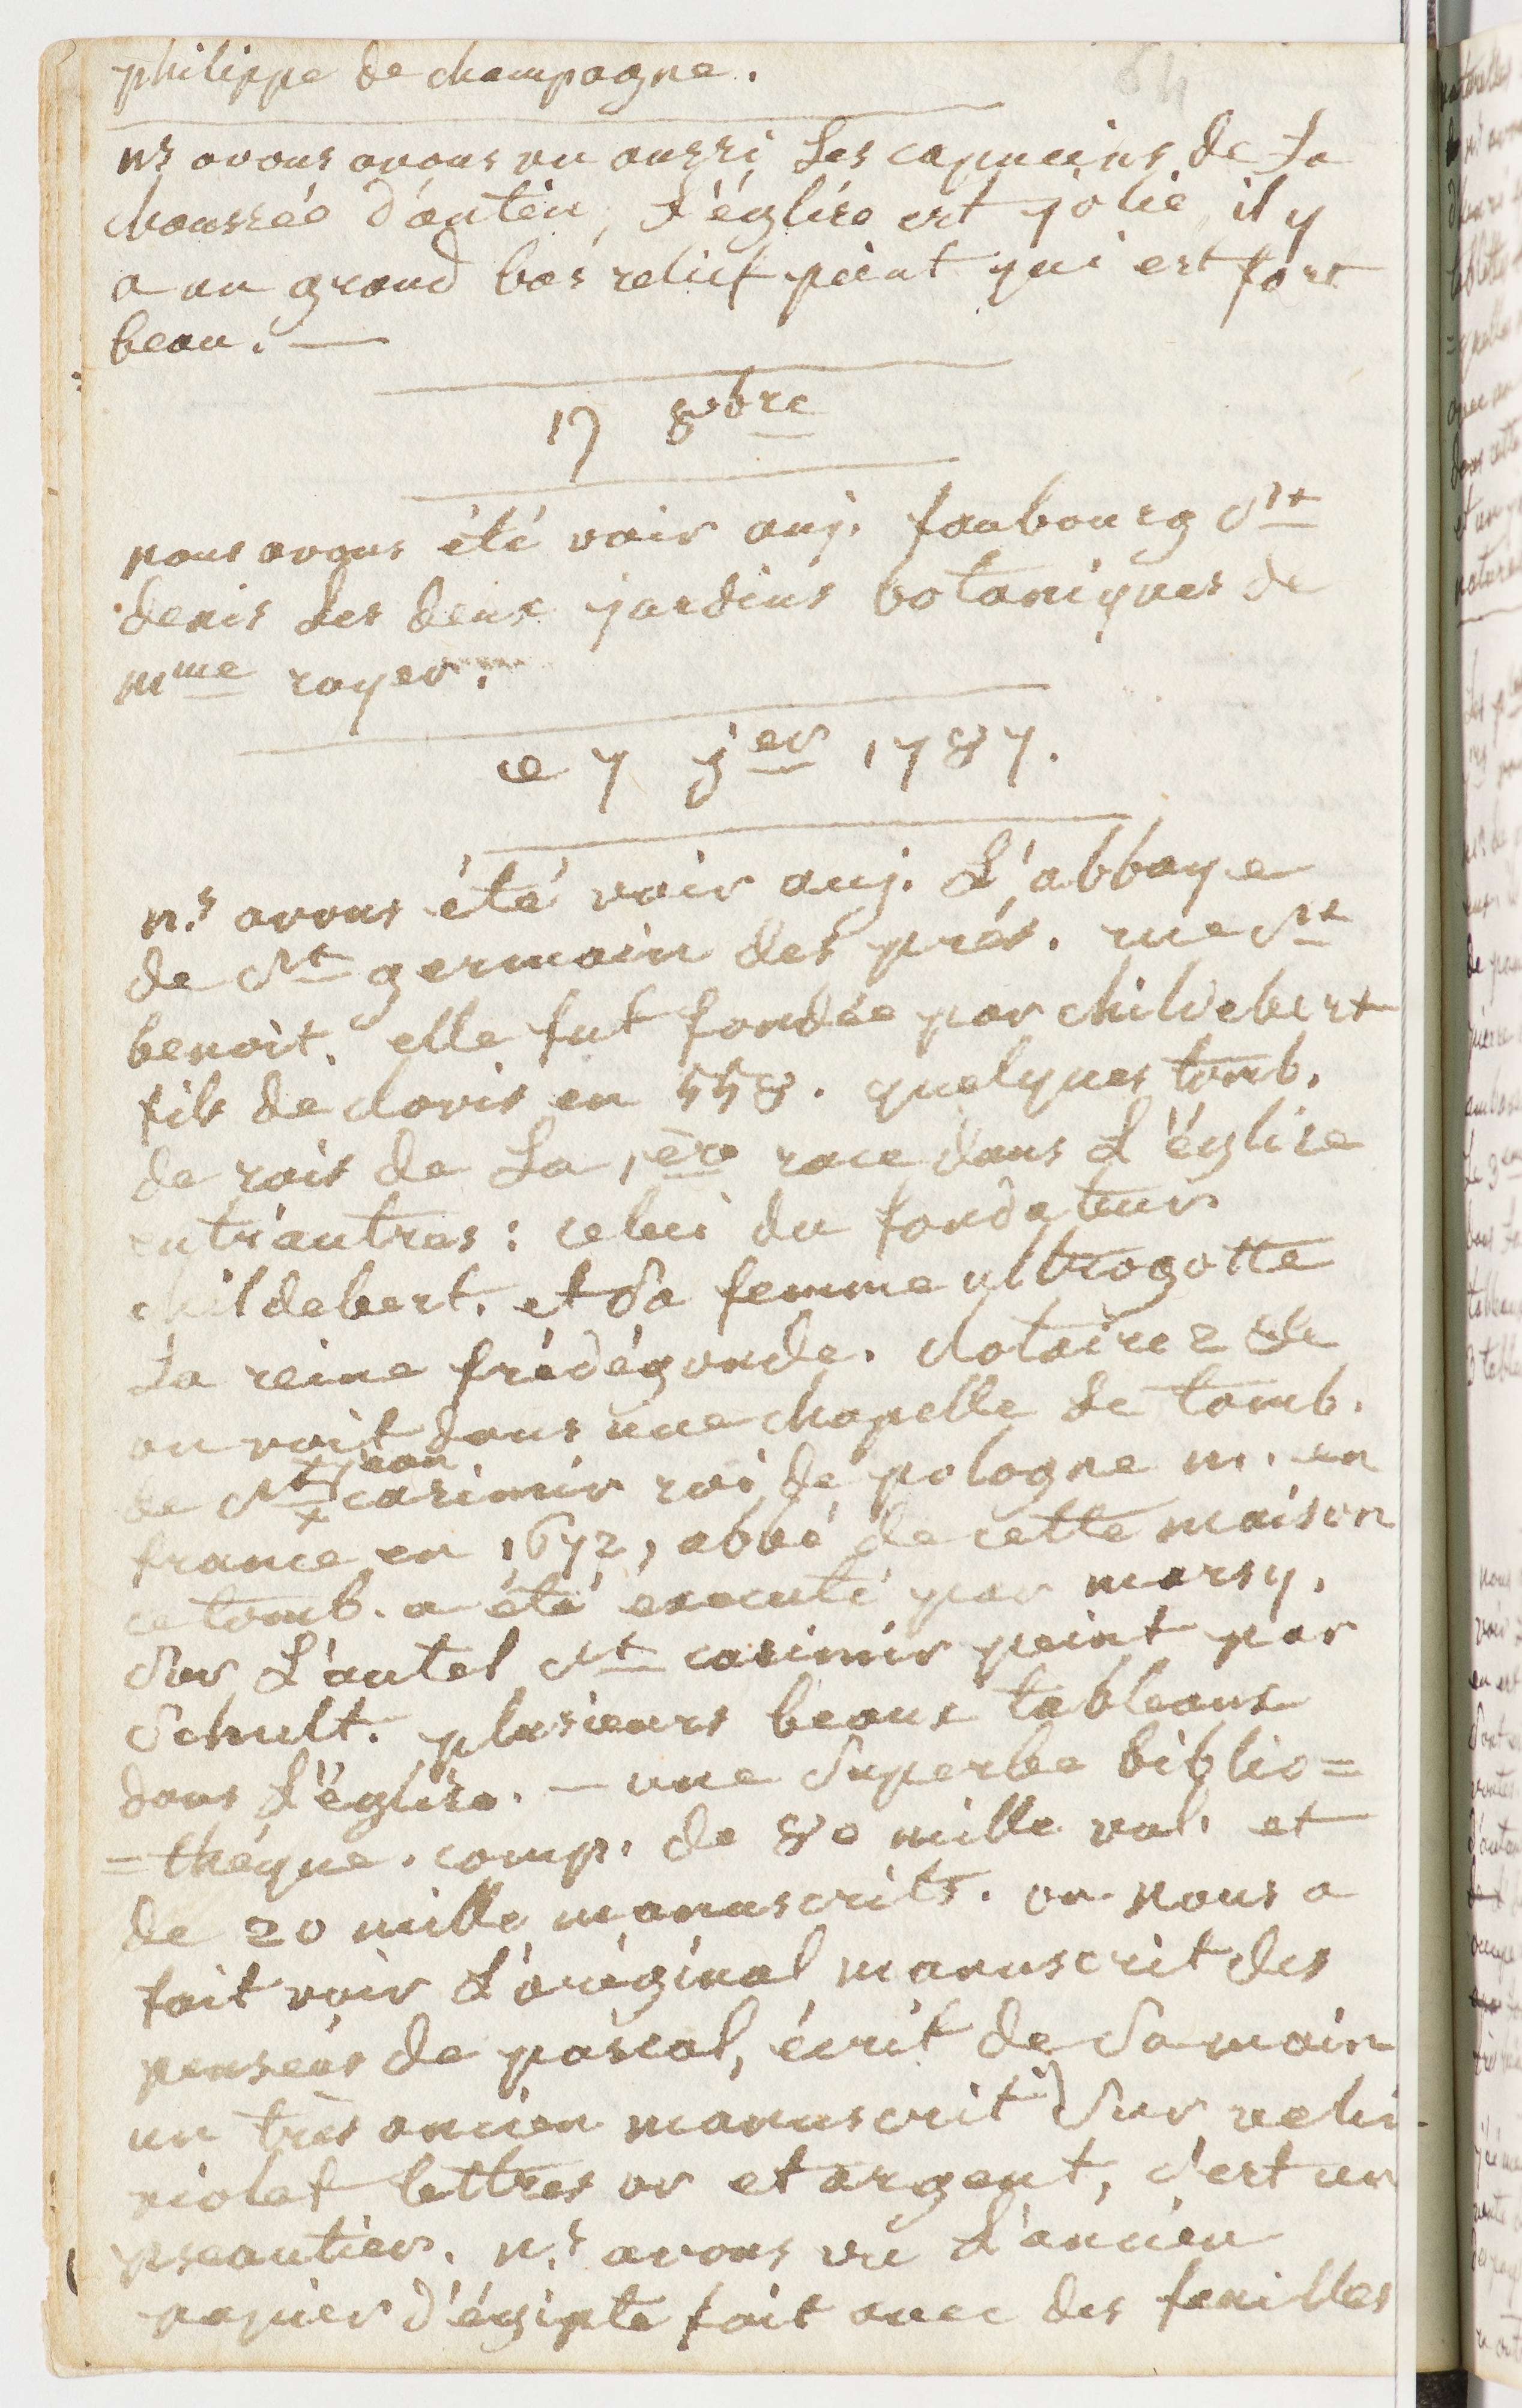 philippe de champagne.
64
ns avons avons vu aussi les capucins de la
chaussée d'antin, l'église est jolie, il y
a un grand bas relief peint qui est fort
beau. —
17 8bre
nous avons été voir auj. faubourg st
denis les deux jardins botaniques de
mme royer.
ce 7 jer 1787.
n.s avons été voir auj. L'abbaye
de st germain des prés. rue st
benoit. elle fut fondée par childebert
fils de clovis en 558. quelques tomb.
de rois de la 1ère race dans l'église
entr'autres : celui du fondateur
childebert. et sa femme ultrogotte
la reine frédégonde. clotaire 2 &c
on voit dans une chapelle le tomb.
jean
de st casimir roi de pologne m. en
france en 1672, abbé de cette maison
ce tomb. a été executé par marsy.
sur l'autel st casimir peint par
schult. plusieurs beaux tableaux
dans l'église. — une superbe biblio=
=théque. comp. de 80 mille vol. et
de 20 mille manuscrits. on nous a
fait voir l'original manuscrit des
penseés de pascal, écrit de sa main
un très ancien manuscrit) sur velin
violet lettres or et argent, c'est un
pseautier. n.s avons vu l'ancien
papier d'égipte fait avec des feuilles